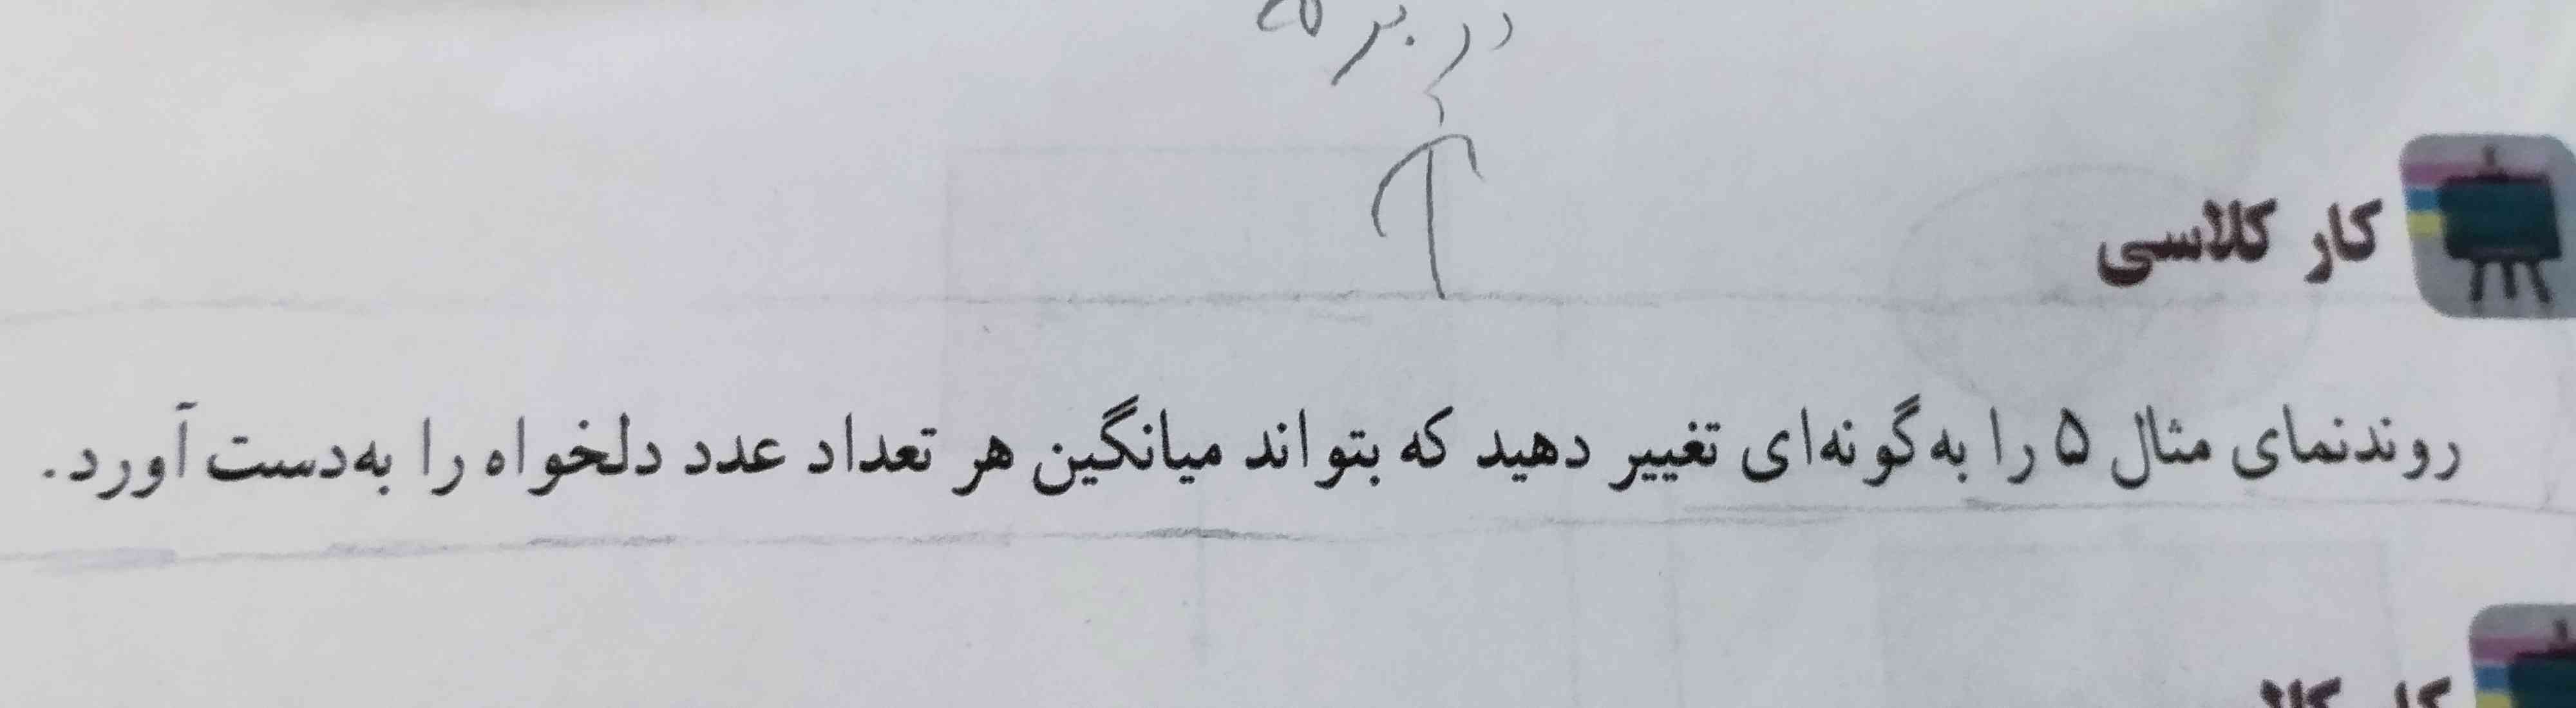 در بر
کار کلاسی
روندنمای مثال ۵ را به‌گونه‌ای تغییر دهید که بتواند میانگین هر تعداد عدد دلخواه را به‌دست آورد.